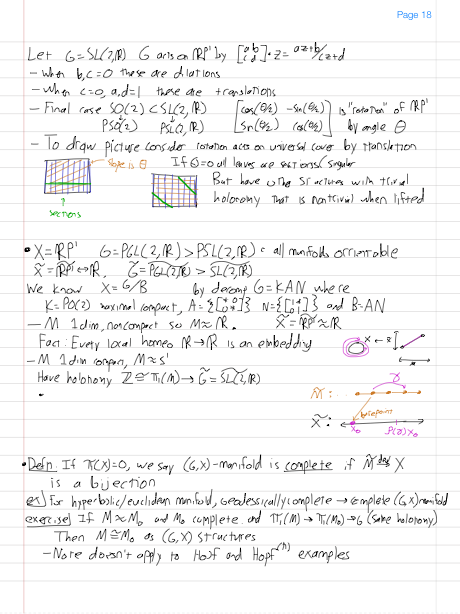 Page 18
Let G=SL(2,ℝ) G acts on ℝP¹ by [a b c d]·z = az+b/cz+d
- When b,c=0 these are dilations
- When c=0, a,d=1 these are translations
- Final case SO(2) < SL(2,ℝ) [cos(θ/2) -sin(θ/2) sin(θ/2) cos(θ/2)] is "rotation" of ℝP¹
PSO(2) PSL(2,ℝ) by angle θ
- To draw picture consider rotation acts on universal cover by translation
slope is θ
If θ=0 all leaves are sections
But have structures with trivial
holonomy that is nontrivial when lifted
?
sections
• X=ℝP¹ G=PGL(2,ℝ) > PSL(2,ℝ) all manifolds orientable
X̃=ℝP¹↔ℝ, G̃=PGL(2,ℝ) > SL(2,ℝ)
We know X=G/B by decomp G=KAN where
K=PO(2) maximal compact, A={[+ 0 0 +]} N={[1 * 0 1]} and B=AN
- M 1dim, noncompact so M≈ℝ. X̃=ℝP¹≈ℝ
Fact: Every local homeo ℝ→ℝ is an embedding
- M 1dim compact, M≈S¹
Have holonomy ℤ≅π₁(M)→G̃=SL(2,ℝ)
•
γ
M̃:
basepoint
X̃:
x₀ ρ(γ)x₀
• Defn: If π(X)=0, we say (G,X)-manifold is complete if M̃ dev→ X
is a bijection
ex) For hyperbolic/euclidean manifold, geodesically complete → complete (G,X) manifold
exercise) If M≈M₀ and M₀ complete and π₁(M)→π₁(M₀)→G (same holonomy)
Then M≅M₀ as (G,X) structures
- Note doesn't apply to Hopf and Hopf⁽ⁿ⁾ examples